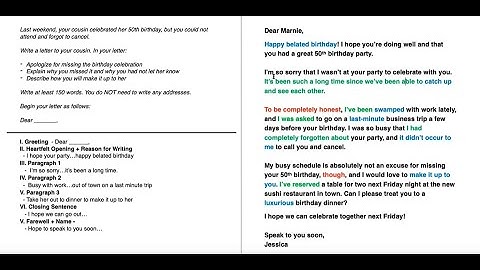 Last weekend, your cousin celebrated her 50th birthday, but you could not
attend and forgot to cancel.
Write a letter to your cousin. In your letter:
• Apologize for missing the birthday celebration
• Explain why you missed it and why you had not let her know
• Describe how you will make it up to her
Write at least 150 words. You do NOT need to write any addresses.
Begin your letter as follows:
Dear _______,
I. Greeting - Dear _______,
II. Heartfelt Opening + Reason for Writing
- I hope your party…happy belated birthday
III. Paragraph 1
- I'm so sorry…it's been a long time.
IV. Paragraph 2
- Busy with work…out of town on a last minute trip
V. Paragraph 3
- Take her out to dinner to make it up to her
VI. Closing Sentence
- I hope we can go out…
V. Farewell + Name -
- Hope to speak to you soon…
Dear Marnie,
Happy belated birthday! I hope you're doing well and that
you had a great 50th birthday party.
I'm so sorry that I wasn't at your party to celebrate with you.
It's been such a long time since we've been able to catch up
and see each other.
To be completely honest, I've been swamped with work lately,
and I was asked to go on a last-minute business trip a few
days before your birthday. I was so busy that I had
completely forgotten about your party, and it didn't occur to
me to call you and cancel.
My busy schedule is absolutely not an excuse for missing
your 50th birthday, though, and I would love to make it up to
you. I've reserved a table for two next Friday night at the new
sushi restaurant in town. Can I please treat you to a
luxurious birthday dinner?
I hope we can celebrate together next Friday!
Speak to you soon,
Jessica